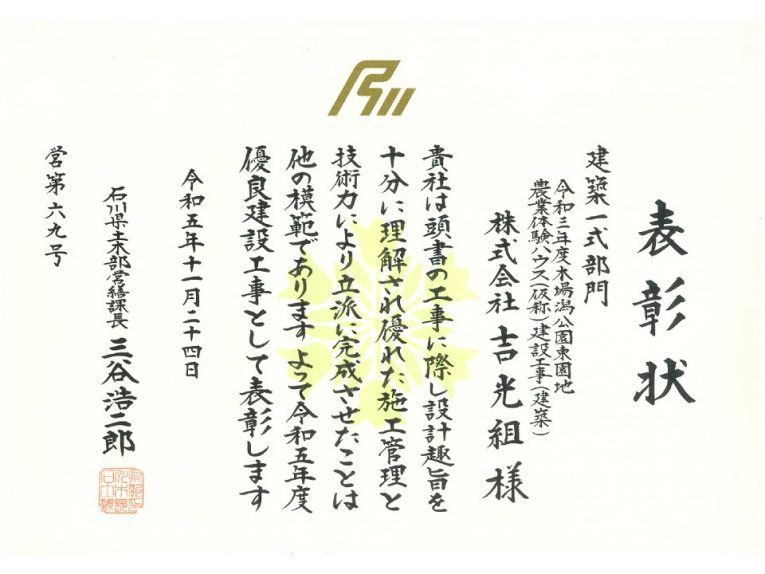 表彰状
建築一式部門
令和三年度木場潟公園東園地
農業体験ハウス(仮称)建設工事(建築)
株式会社吉光組様
貴社は頭書の工事に際し設計趣旨を
十分に理解され優れた施工管理と
技術力により立派に完成させたことは
他の模範であります よって令和五年度
優良建設工事として表彰します
令和五年十一月二十四日
石川県土木部営繕課長 三谷浩二郎
営第六九号